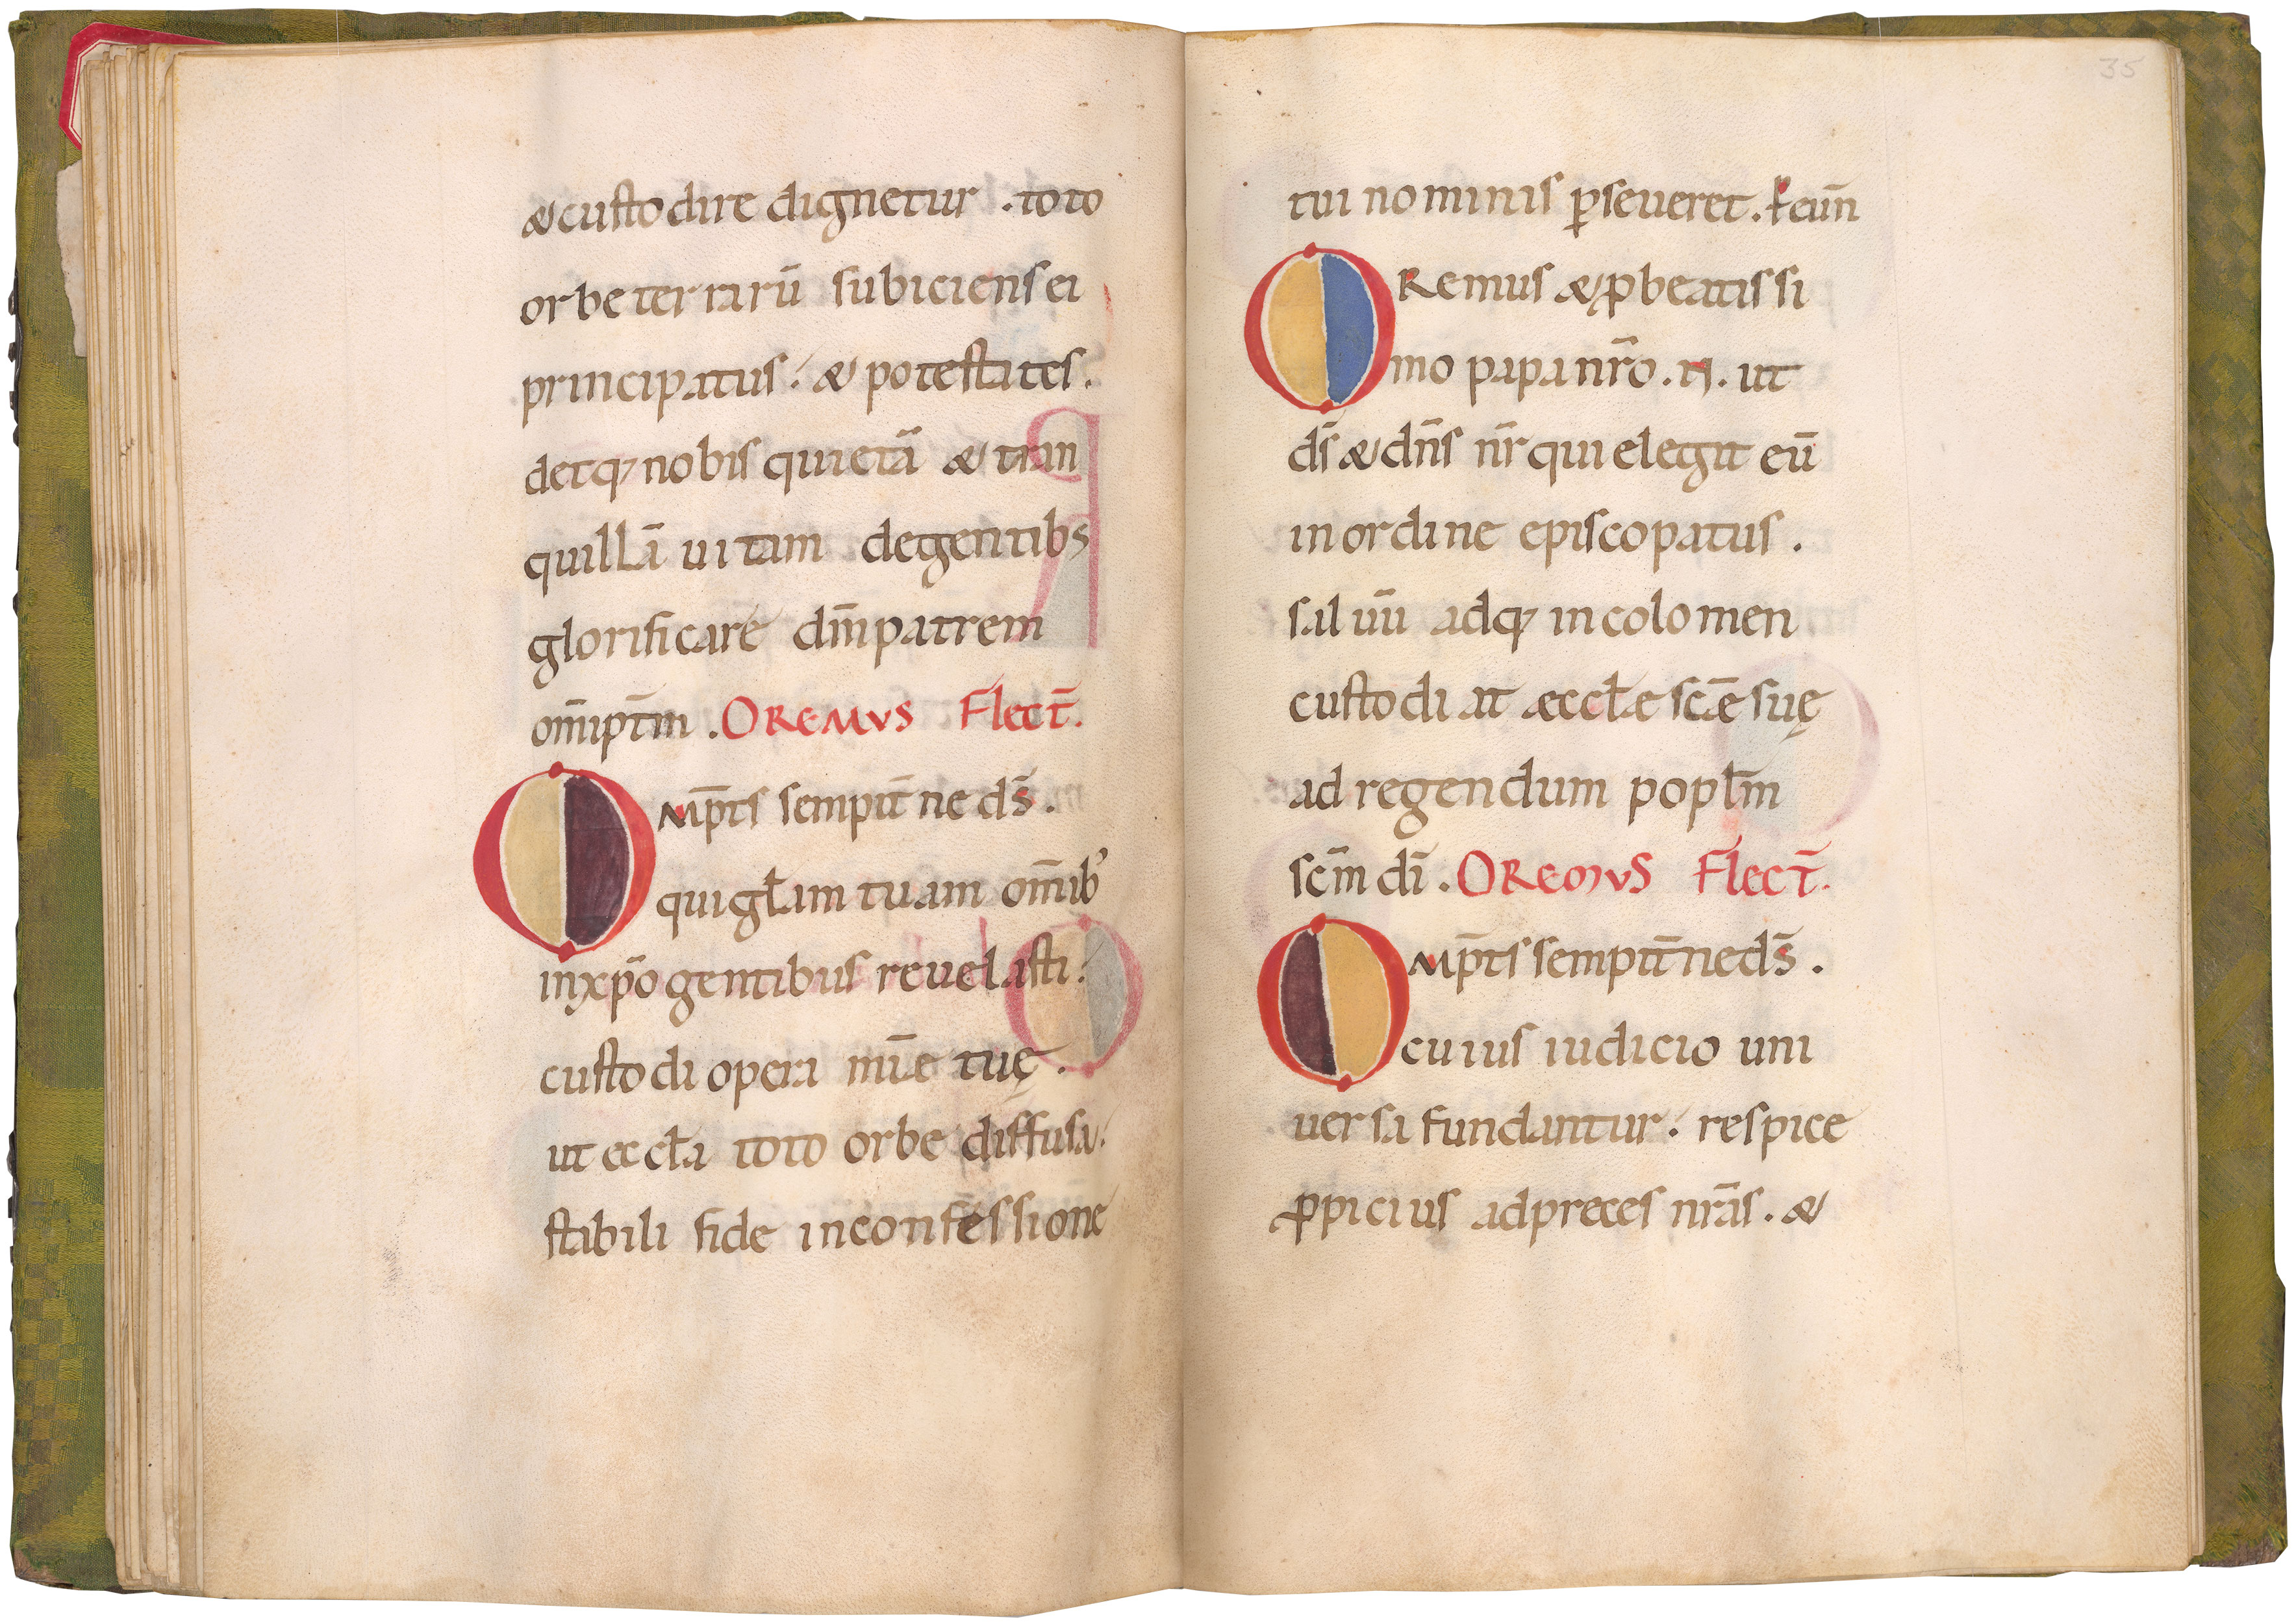 & custodire dignetur . toto
orbe terrarū subiciens ei
principatus . & potestates .
detq; nobis quietā & tran
quillā uitam degentibs
glorificare dm̄ patrem
om̄ipt̄m . OREMVS Flect̄.
OMp̄ts sempit̄ne ds̄ .
qui gl̄am tuam om̄ib'
in xp̄o gentibus reuelasti .
custodi opera mīe tuę .
ut eccl̄a toto orbe diffusa .
stabili fide in confessione
35
tui nominis p̱seueret . P̱ eūn
ORemus & ꝓ beatissi
mo papa nr̄o . N . ut
ds̄ & dn̄s nr̄ qui elegit eū
in ordine episcopatus .
saluū adq; incolomen
custodiat æccl̄æ sc̄æ suę
ad regendum popl̄m
sc̄m dī . OREMVS Flect̄.
OMp̄ts sempit̄ne ds̄ .
cuius iudicio uni
uersa fundantur . respice
ꝓpicius ad preces nr̄as . &